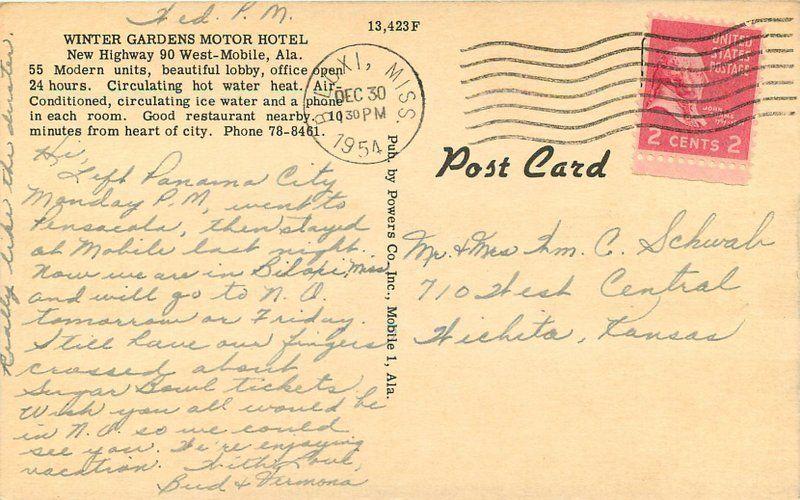 Wed. P.M.
13,423F
WINTER GARDENS MOTOR HOTEL
New Highway 90 West-Mobile, Ala.
55 Modern units, beautiful lobby, office open
24 hours. Circulating hot water heat. Air-
Conditioned, circulating ice water and a phone
in each room. Good restaurant nearby.
minutes from heart of city. Phone 78-8461.
Hi,
Left Panama City
Monday P.M, went to
Pensacola, then stayed
at Mobile last night.
Now we are in Biloxi, Miss
and will go to N.O.
tomorrow or Friday.
Still have our fingers
crossed about
Sugar Bowl tickets
Wish you all would be
in N.O. so we could
see you. We're enjoying
vacation. With Love,
Bud & Vermona
Really like the duster.
Pub. by Powers Co., Inc., Mobile 1, Ala.
BILOXI, MISS.
DEC 30
10 30 PM
1954
UNITED
STATES
POSTAGE
JOHN
2 CENTS 2
Post Card
Mr. & Mrs Wm. C. Schwab
710 West Central
Wichita, Kansas